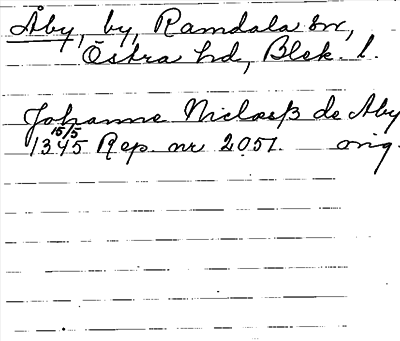 Åby, by, Ramdala sn,
Östra hd, Blek. l.
Johanne Niclosß de Aby
1345 15/5 Rep. nr 2051. orig.